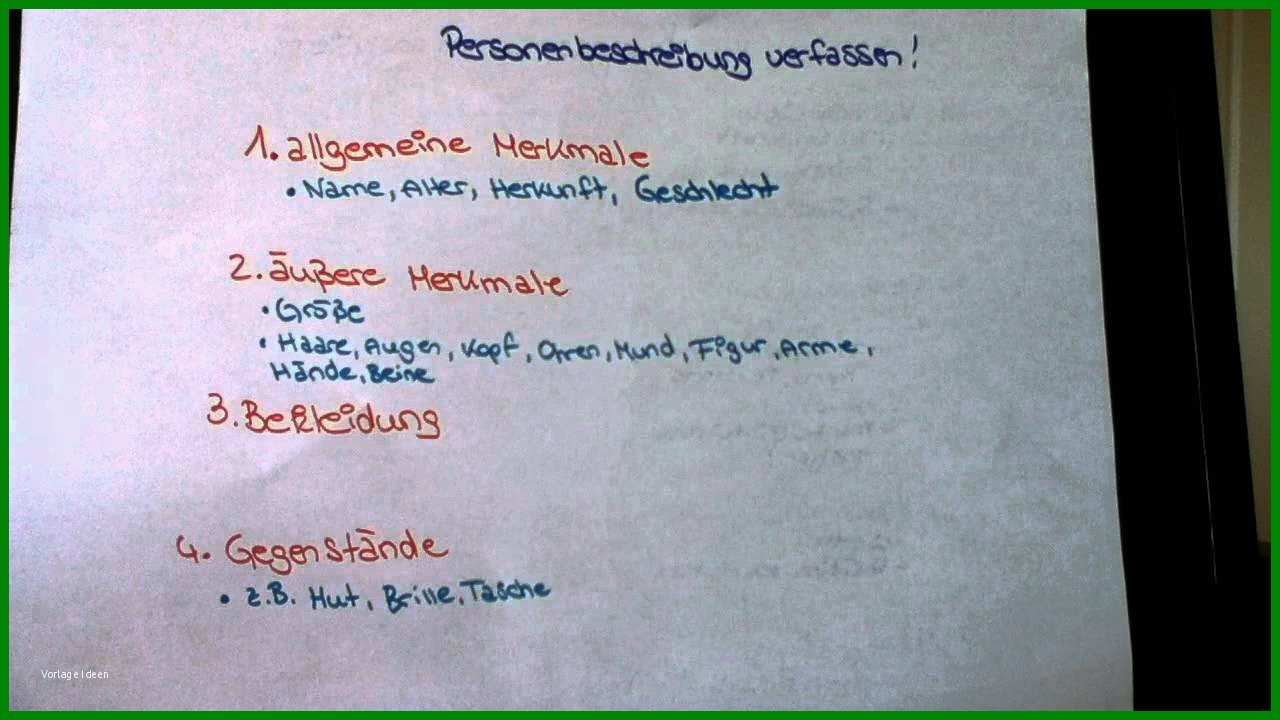 Personenbeschreibung verfassen!
1. allgemeine Merkmale
• Name, Alter, Herkunft, Geschlecht
2. äußere Merkmale
• Größe
• Haare, Augen, Kopf, Ohren, Mund, Figur, Arme,
Hände, Beine
3. Bekleidung
4. Gegenstände
• z.B. Hut, Brille, Tasche
Vorlage Ideen